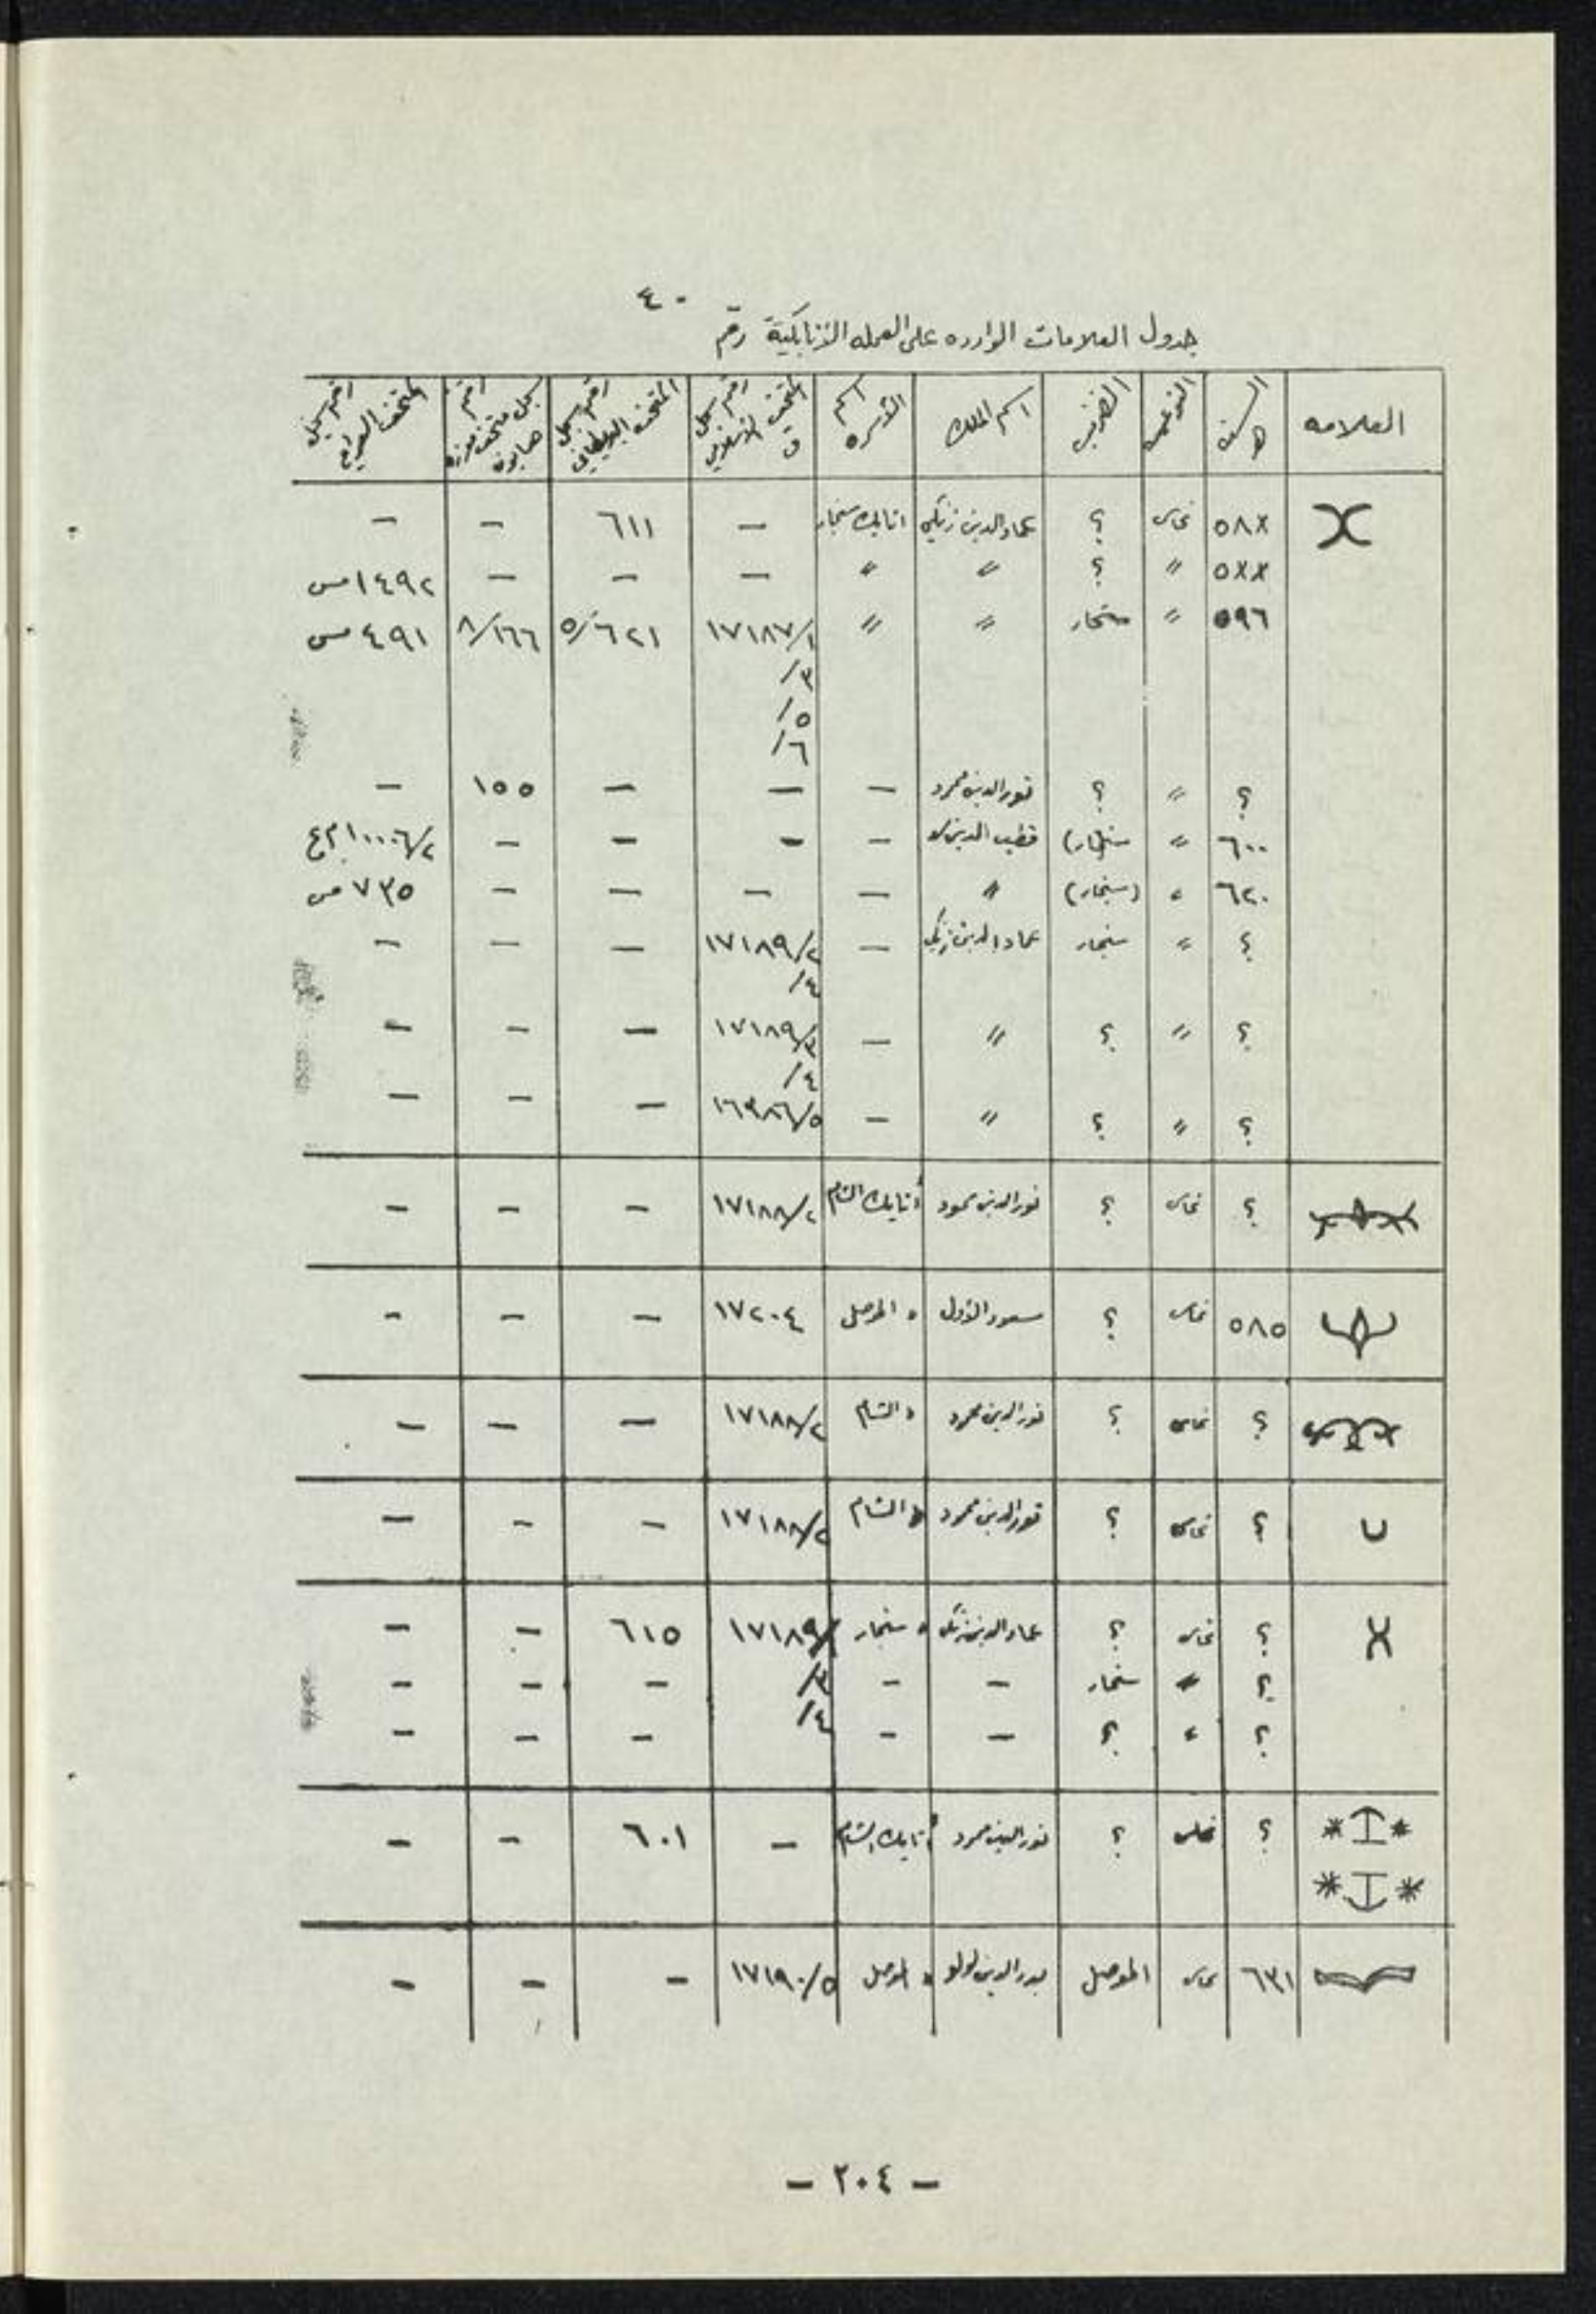 ٤٠
جدول العلامات الوارده على العمله الاتابكية رقم
العلامه | السنة هـ | النوعية | الضرب | اسم الملك | اسم الأسره | رقم سجل المتحف الإسلامي ق | رقم سجل المتحف البريطاني | رقم سجل متحف | رقم سجل المتحف العراقي
٥٨x | نحاس | ؟ | عمادالدين زنكي | اتابك سنجار | — | ٦١١ | — | —
٥xx | 〃 | ؟ | 〃 | 〃 | — | — | — | ١٤٩٢ مس
٥٩٦ | 〃 | سنجار | 〃 | 〃 | ١٧١٨٧/١ | ٥/٦٢١ | ٨/١٦٦ | ٤٩١ مس
/٣
/٥
/٦
؟ | 〃 | ؟ | نورالدين محمود | — | — | — | ١٥٥ | —
٦٠٠ | 〃 | سنجار) | قطب الدين | — | — | — | — | ١٠٠٠٦/٢ م ع
٦٢٠ | 〃 | (سنجار) | 〃 | — | — | — | — | ٧٣٥ مس
؟ | 〃 | سنجار | عمادالدين زنكي | — | ١٧١٨٩/٢ | — | — | —
/٤
؟ | 〃 | ؟ | 〃 | — | ١٧١٨٩/٣ | — | — | —
/٤
؟ | 〃 | ؟ | 〃 | — | ١٦٣٨٦/٥ | — | — | —
؟ | نحاس | ؟ | نورالدين محمود | أتابك الشام | ١٧١٨٨/٢ | — | — | —
٥٨٥ | نحاس | ؟ | مسعود الأول | 〃 الموصل | ١٧٢٠٤ | — | — | —
؟ | نحاس | ؟ | نورالدين محمود | 〃 الشام | ١٧١٨٨/٢ | — | — | —
؟ | نحاس | ؟ | نورالدين محمود | 〃 الشام | ١٧١٨٨/٢ | — | — | —
؟ | نحاس | ؟ | عمادالدين زنكي | 〃 سنجار | ١٧١٨٩/ | ٦١٥ | — | —
؟ | 〃 | سنجار | — | — | /٣ | — | — | —
؟ | 〃 | ؟ | — | — | /٤ | — | — | —
؟ | نحاس | ؟ | نورالدين محمود | أتابك الشام | — | ٦٠١ | — | —
٦٣١ | نحاس | الموصل | بدرالدين لولو | 〃 الموصل | ١٧١٩٠/٥ | — | — | —
— ٢٠٤ —